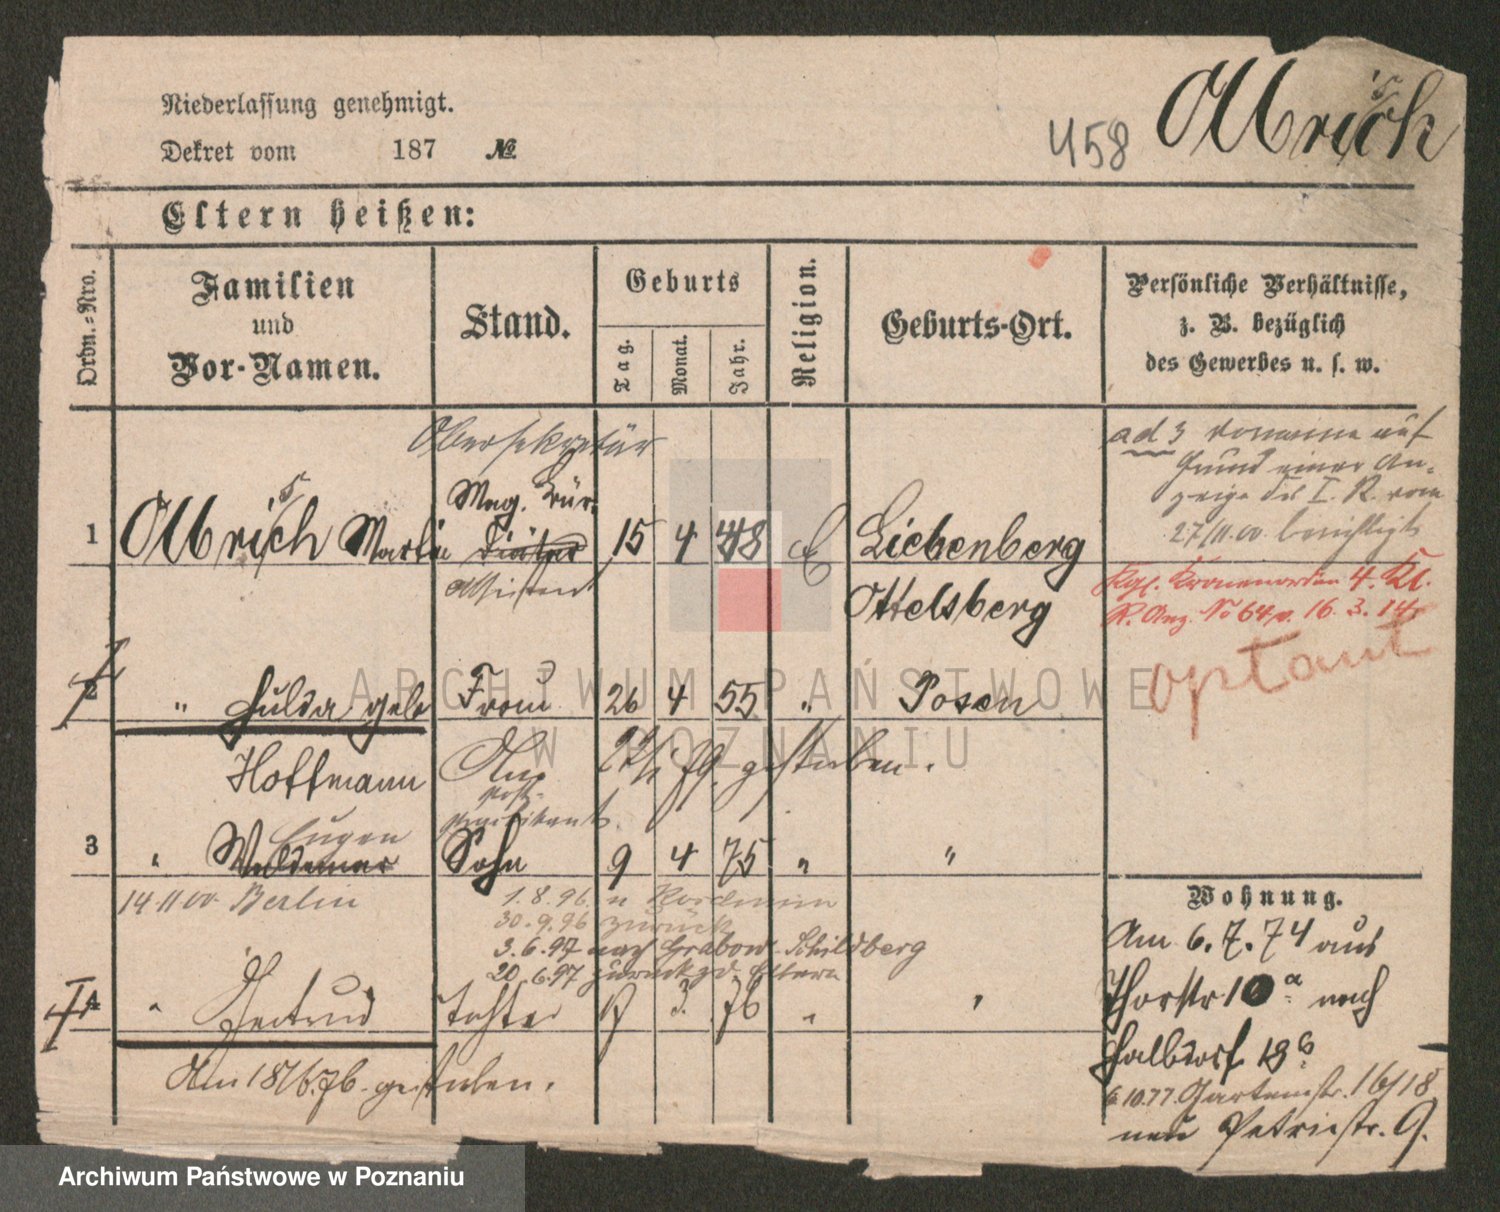 Niederlassung genehmigt.
Dekret vom 187 №
458 Ollbrich
Eltern heißen:
Ordn.-Nro.
Familien
und
Vor-Namen.
Stand.
Geburts
Tag.
Monat.
Jahr.
Religion.
Geburts-Ort.
Persönliche Verhältnisse,
z. B. bezüglich
des Gewerbes u. s. w.
Obersekretär
Mag. Bür.
1 Ollbrich Martin 15 4 48 E Liebenberg
Assistent
Ottelsberg
ad 3 vorname auf
Grund einer An-
zeige des I. R. vom
27/11.00 berichtigt
Kgl. Kronenorden 4. Kl.
R. Anz. No 64 v. 16. 3. 14
optant
2 " Hulda geb Frau 26 4 55 " Posen
Hoffmann
79 gestorben.
Eugen
3 " Waldemar Sohn 9 4 75 " "
14.11.00 Berlin
1.8.96. n
30.9.96 zurück
3.6.97 nach Grabow Schildberg
20.6.97 zurück z d. Eltern
4 " Gertrud Tochter 3 76 " "
Am 18/6.76. gestorben.
Wohnung.
Am 6.7.74 aus
Thorstr 10a nach
Halbdorf 18b
6.10.77. Gartenstr. 16/18
neu Petristr. 9.
ARCHIWUM PAŃSTWOWE
W POZNANIU
Archiwum Państwowe w Poznaniu